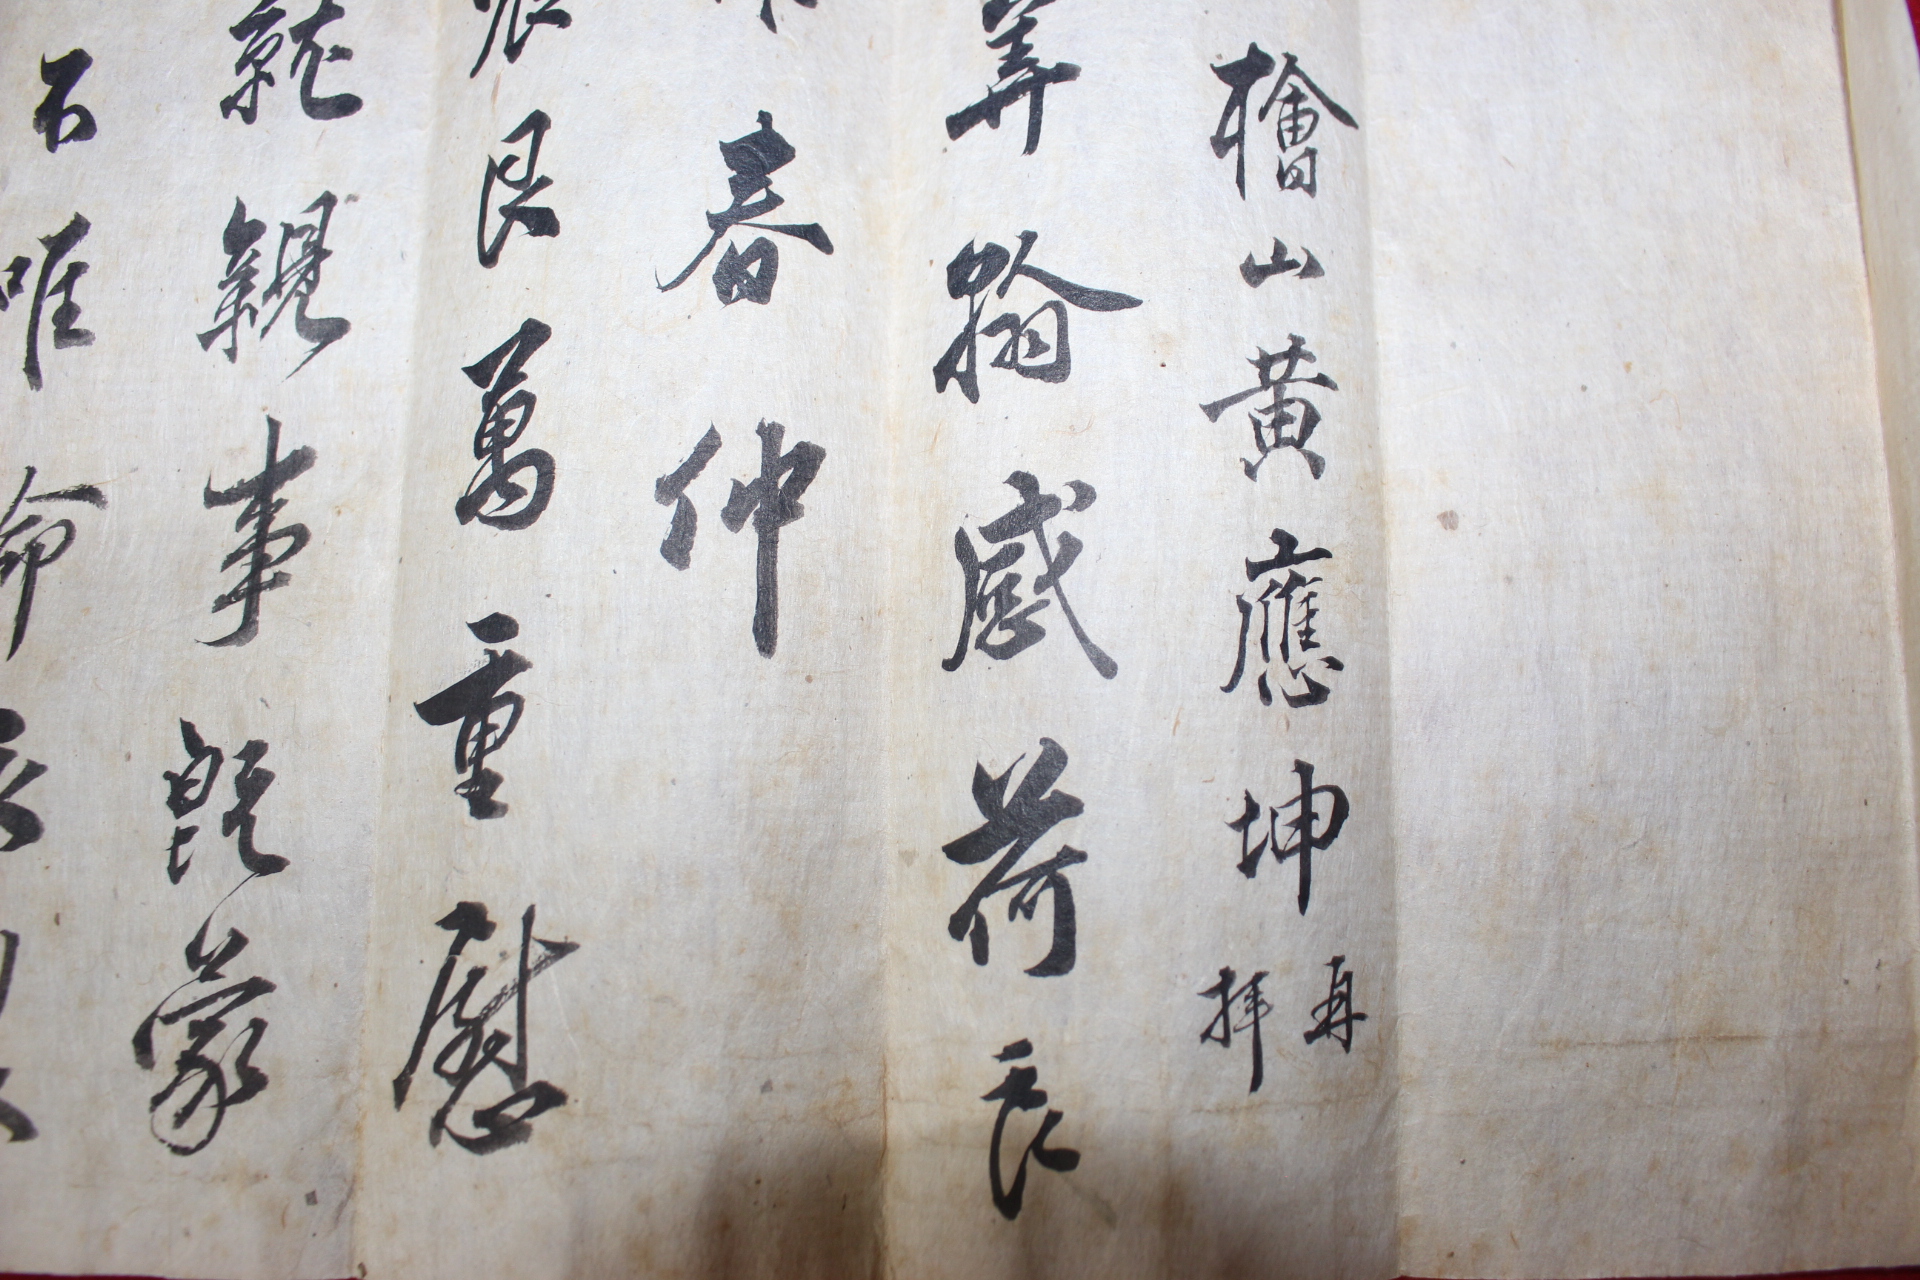 檜山黃應坤再拜
華翰感荷良
春仲
艮萬重慰
就親事旣蒙
不唯命